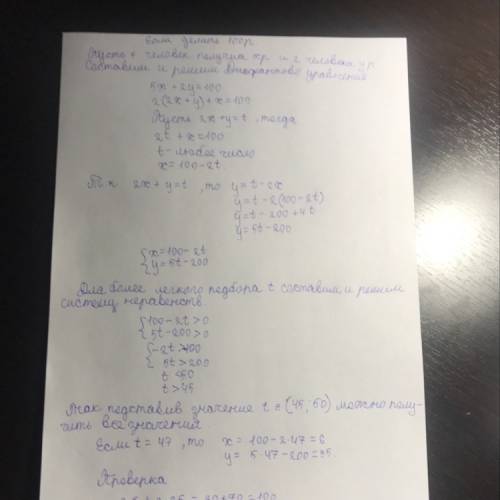 Если делить 100р
Пусть 4 человек получил xр и 2 человека yр
Составим и решим Диофантово уравнение
5x + 2y = 100
2(2x+y)+x=100
Пусть 2x+y=t, тогда
2t + x = 100
t - любое число
x = 100-2t.
Т.к 2x+y=t, то y=t-2x
y=t-2(100-2t)
y=t-200+4t
y=5t-200
{x=100-2t
{y=5t-200
Для более легкого подбора t составим и решим
систему неравенств.
{100-2t>0
{5t-200>0
{-2t>-100
{5t>200
t<50
t>45
Так подставив значение t=(45; 50) можно полу-
чить все значения.
Если t=47, то x=100-2·47=6
y=5·47-200=35.
Проверка